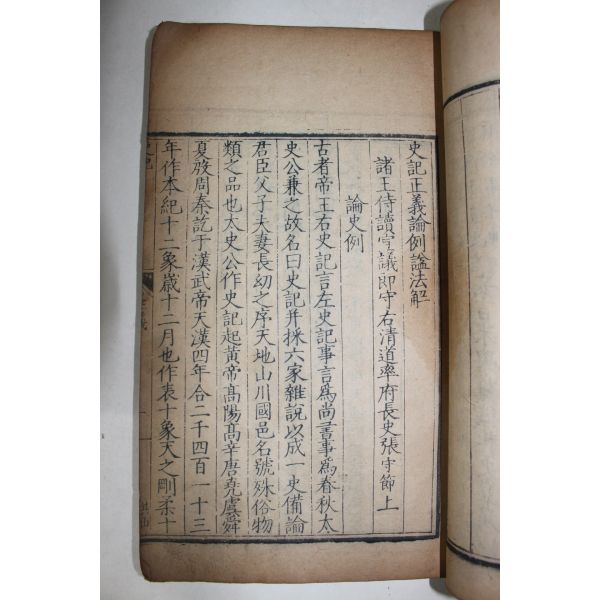 史記正義論例謚法解
諸王侍讀宣議郎守右清道率府長史張守節上
論史例
古者帝王右史記言左史記事言爲尚書事爲春秋太
史公兼之故名曰史記并採六家雜說以成一史備論
君臣父子夫妻長幼之序天地山川國邑名號殊俗物
類之品也太史公作史記起黃帝高陽高辛唐堯虞舜
夏殷周秦訖于漢武帝天漢四年合二千四百一十三
年作本紀十二象歲十二月也作表十象天之剛柔十